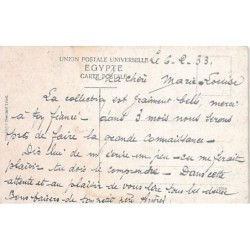 UNION POSTALE UNIVERSELLE Le 6.2.33.
EGYPTE
CARTE POSTALE
Ma chère Marie-Louise
La collection est vraiment belle, merci
à ton fiancé - dans 3 mois nous serons
près de faire la grande connaissance -
Dis lui de m'écrire un peu - ça me ferait
plaisir tu dois le comprendre - Dans cette
attente et au plaisir de vous lire tous les deux
Bons baisers de ton petit